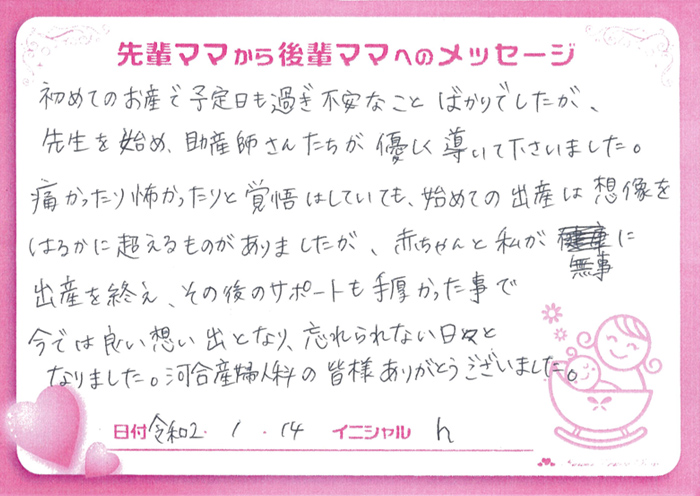 先輩ママから後輩ママへのメッセージ
初めてのお産で予定日も過ぎ不安なことばかりでしたが、
先生を始め、助産師さんたちが優しく導いて下さいました。
痛かったり怖かったりと覚悟はしていても、始めての出産は想像を
はるかに超えるものがありましたが、赤ちゃんと私が無事に
出産を終え、その後のサポートも手厚かった事で
今では良い想い出となり、忘れられない日々と
なりました。河合産婦人科の皆様ありがとうございました。
日付 令和2・1・14 イニシャル h